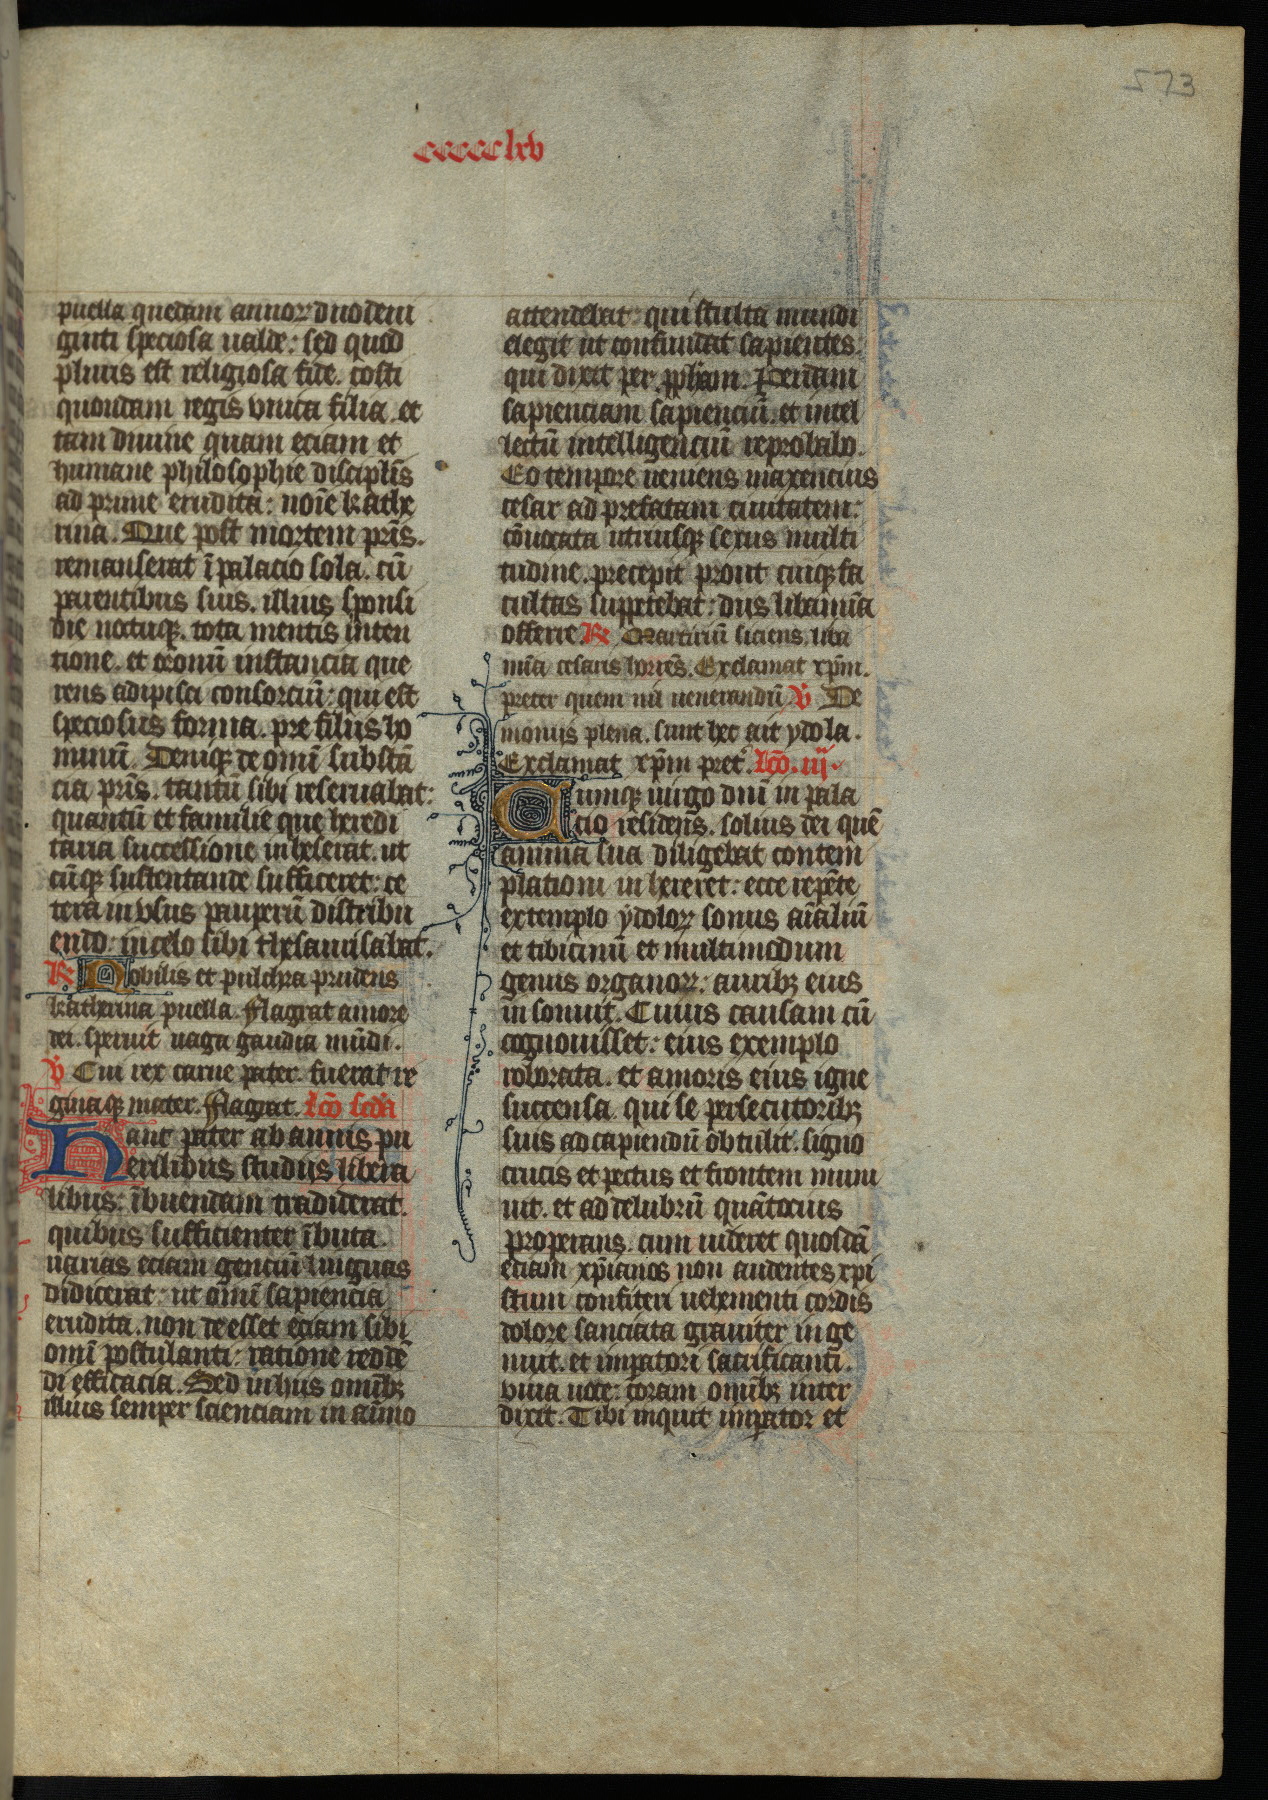 573
ccccclxv
puella quedam annoꝝ duodeui
ginti speciosa ualde: sed quod
pluris est religiosa fide. costi
quondam regis vnica filia. et
tam diuine quam eciam et
humane philosophie disciplis̄
ad prime erudita: noīe kathe
rina. Que post mortem pr̄is.
remanserat ī palacio sola. cū
parentibus suis. illius sponsi
die noctuqꝫ. tota mentis inten
tione. et oronū instancia que
rens adipisci consorciū: qui est
speciosus forma. pre filiis ho
minū. Deniqꝫ de omī substā
cia pr̄is. tantū sibi reseruabat:
quantū et familie que heredi
taria successione inheserat. ut
cūqꝫ sustentande sufficeret: ce
tera in vsus pauperū distribu
endo: in celo sibi thesaurisabat.
R Nobilis et pulchra prudens
katherina puella. Flagrat amore
dei. spreuit uaga gaudia mūdi.
V Cui rex carne pater. fuerat re
ginaqꝫ mater. Flagrat. Lc̄o scd̄a
Hanc pater ab annis pu
erilibus studiis libera
libus: ībuendam tradiderat.
quibus sufficienter ībuta.
uarias eciam genciū linguas
didicerat: ut om̄i sapiencia
erudita. non deesset eciam sibi
omī postulanti: ratione redde
di efficacia. Sed in hiis omībꝫ
illius semper scienciam in aīmo
attendebat: qui stulta mundi
elegit ut confundat sapientes.
qui dixit per ꝓpham. Perdam
sapienciam sapienciū. et intel
lectū intelligenciū reprobabo.
Eo tempore ueniens maxencius
cesar ad prefatam ciuitatem:
cōuocata utriusqꝫ sexus multi
tudine. precepit prout cuiqꝫ fa
cultas suppetebat: diis libamīa
offerre. R Martiriū siciens. liba
mīa cesaris horrēs. Exclamat xp̄m.
preter quem nil uenerandū. V De
moniis plena. sunt hec ait ydola.
Exclamat xp̄m pret̄. Lc̄o. iij.
Cumqꝫ uirgo dn̄i in pala
cio residens. solius dei quē
anima sua diligebat contem
plationi in hereret: ecce repēte
extemplo ydoloꝝ sonus aīaliū
et tibicinū et multimodum
genus organoꝝ: auribꝫ eius
in sonuit. Cuius causam cū
cognouisset: eius exemplo
roborata. et amoris eius igne
succensa. qui se persecutoribꝫ
suis ad capiendū obtulit. signo
crucis et pectus et frontem muni
uit. et ad delubrū quātocius
properans. cum uideret quosdā
eciam xp̄ianos non audentes xpi
stum confiteri uehementi cordis
dolore sauciata grauiter in ge
muit. et imꝑatori sacrificanti.
viua uoce: coram omībꝫ inter
dixit. Tibi inquit imꝑator et